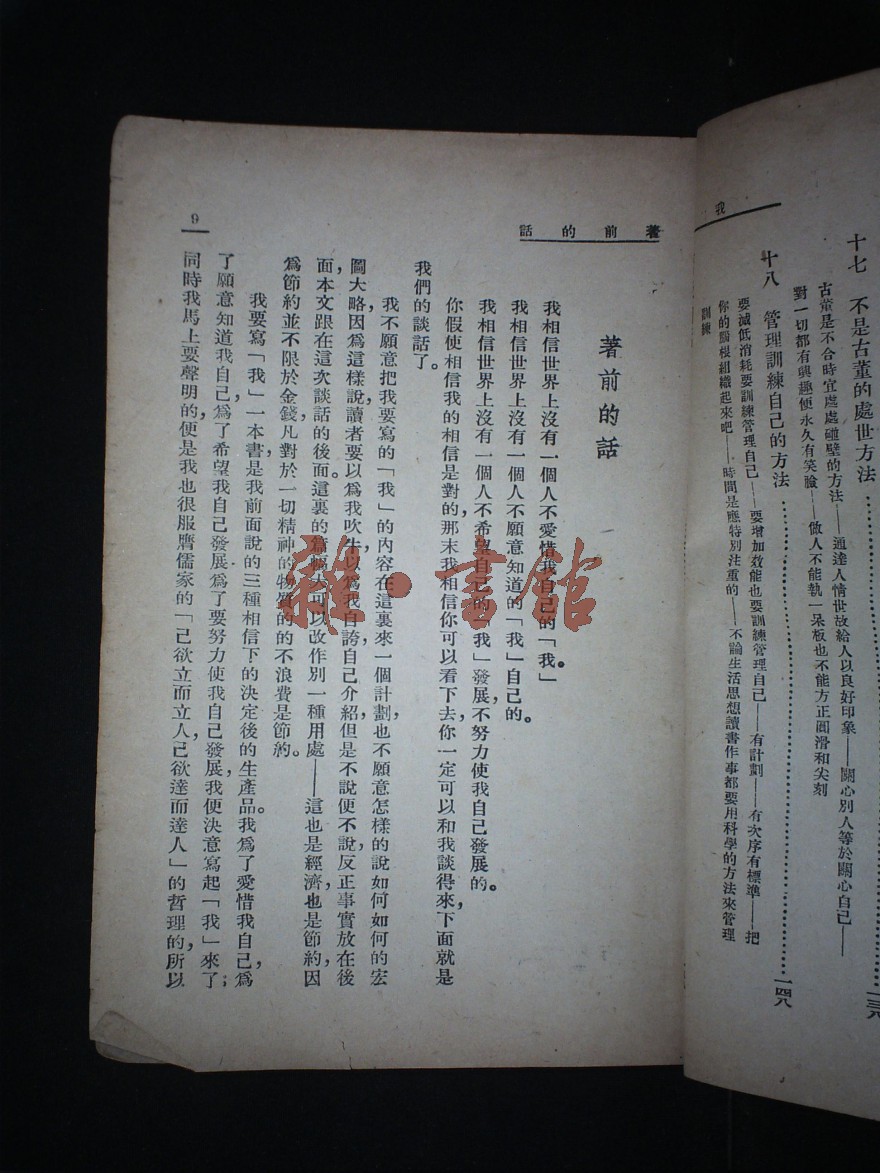 我
十七　不是古董的處世方法……一三八
古董是不合時宜處處碰壁的方法——通達人情世故給人以良好印象——關心別人等於關心自己——
對一切都有興趣便永久有笑臉——做人不能執一呆板也不能方正圓滑和尖刻
十八　管理訓練自己的方法……一四八
要減低消耗要訓練管理自己——要增加效能也要訓練管理自己——有計劃——有次序有標準——把
你的腦根組織起來吧——時間是應特別注重的——不論生活思想讀書作事都要用科學的方法來管理
訓練
著前的話
9
著前的話
我相信世界上沒有一個人不愛惜我自己的「我。」
我相信世界上沒有一個人不願意知道的「我」自己的。
我相信世界上沒有一個人不希望自己的「我」發展，不努力使我自己發展的。
你假使相信我的相信是對的，那末我相信你可以看下去，你一定可以和我談得來，下面就是
我們的談話了。
我不願意把我要寫的「我」的內容在這裏來一個計劃，也不願意怎樣的說如何如何的宏
圖大略，因爲這樣說，讀者要以爲我吹牛，以爲我自誇自己介紹，但是不說便不說，反正事實放在後
面，本文跟在這次談話的後面。這裏的篇幅大可以改作別一種用處——這也是經濟，也是節約，因
爲節約並不限於金錢，凡對於一切精神的物質的的不浪費是節約。
我要寫「我」一本書，是我前面說的三種相信下的決定後的生產品。我爲了愛惜我自己，爲
了願意知道我自己，爲了希望我自己發展，爲了要努力使我自己發展，我便決意寫起「我」來了；
同時我馬上要聲明的，便是我也很服膺儒家的「己欲立而立人，己欲達而達人」的哲理的，所以
雜·書館